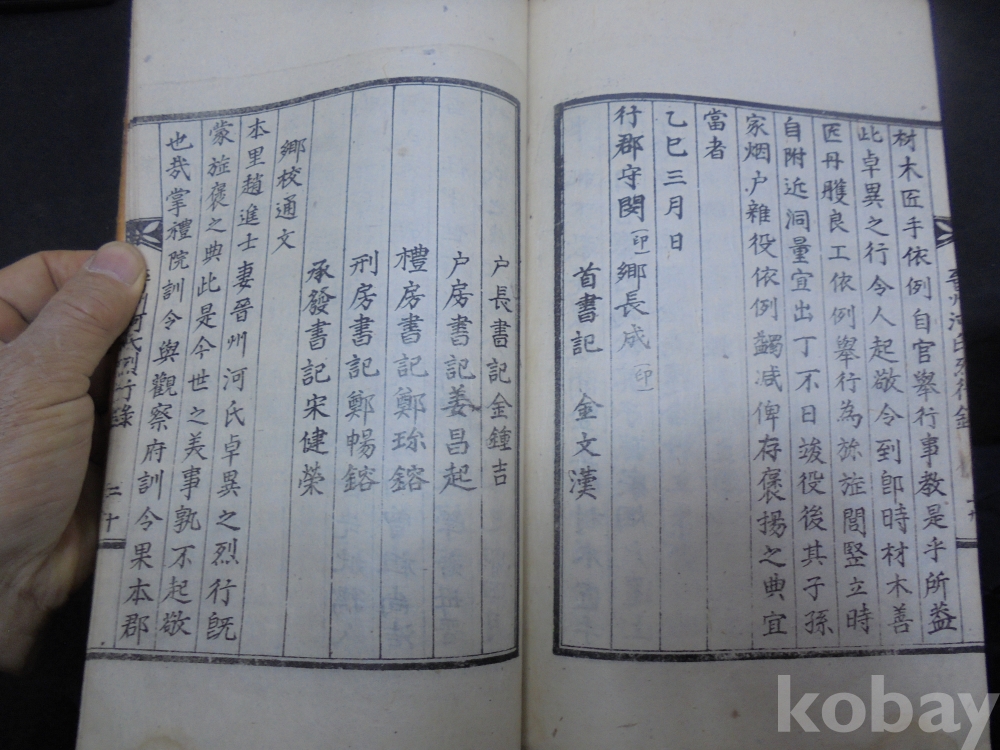 材木匠手依例自官舉行事教是乎所益
此卓異之行令人起敬令到卽時材木善
匠丹雘良工依例舉行為旀旌閭竪立時
自附近洞量宜出丁不日竣役後其子孫
家烟户雜役依例蠲减俾存褒揚之典宜
當者
乙巳三月日
行郡守閔印鄉長成印
首書記金文漢
户長書記金鍾吉
户房書記姜昌起
禮房書記鄭珎鎔
刑房書記鄭暢鎔
承發書記宋健榮
鄉校通文
本里趙進士妻晉州河氏卓異之烈行旣
蒙旌褒之典此是今世之美事孰不起敬
也㦲掌禮院訓令與觀察府訓令果本郡
晉州河氏烈行錄
河氏烈行錄 二十
kobay